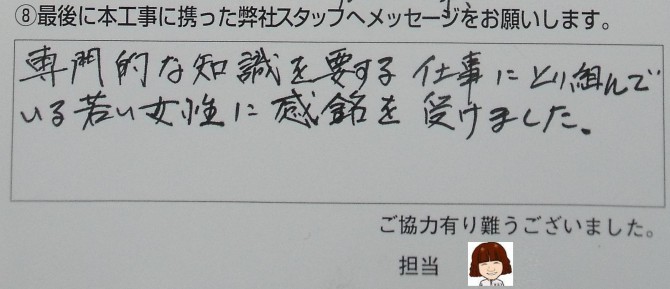 ⑧最後に本工事に携った弊社スタッフへメッセージをお願いします。
専門的な知識を要する仕事にとり組んで
いる若い女性に感銘を受けました。
ご協力有り難うございました。
担当